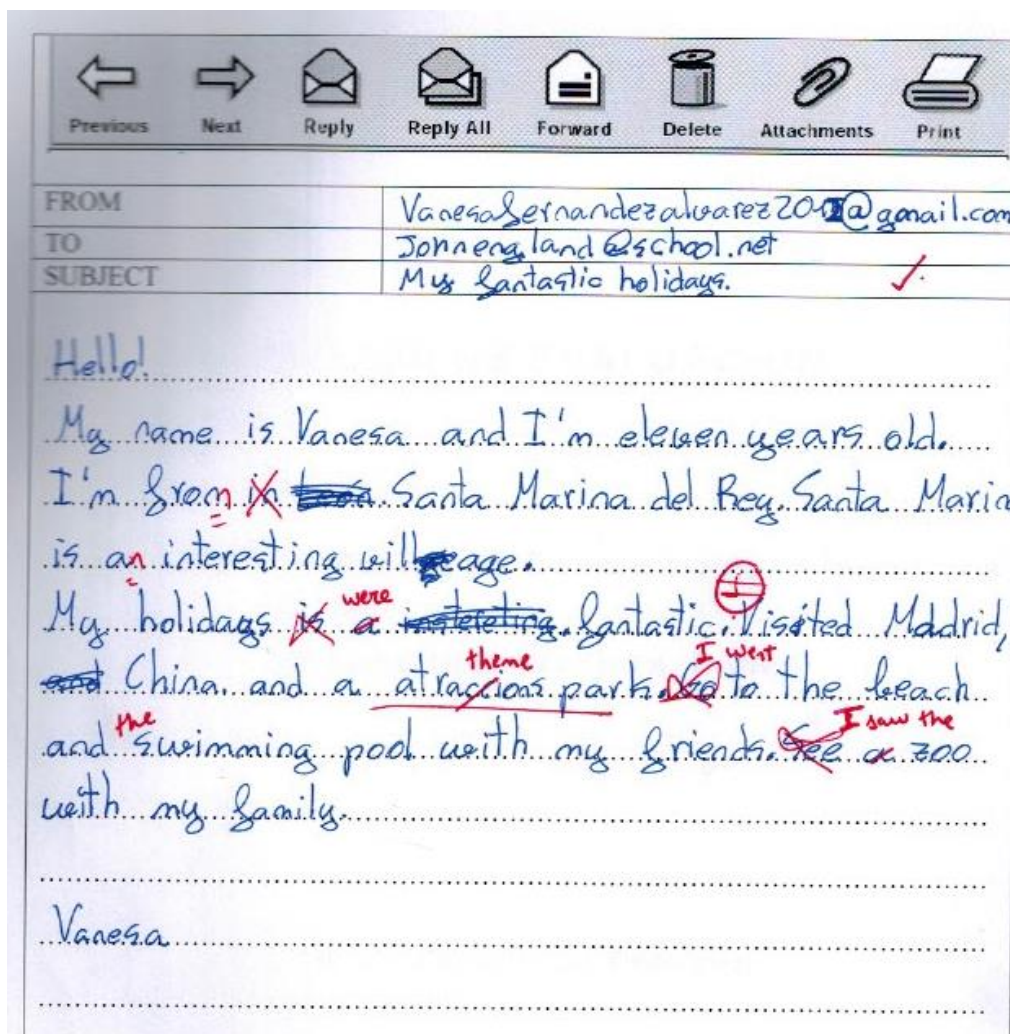 Previous Next Reply Reply All Forward Delete Attachments Print
FROM Vanesafernandezalvarez201@gmail.com
TO Johnengland@school.net
SUBJECT My fantastic holidays.
Hello!
My name is Vanesa and I'm eleven years old.
I'm from in León Santa Marina del Rey. Santa Marin
is an interesting village.
were I
My holidays is a fantastic. Visited Madrid,
theme I went
and China and a atraccions park. Go to the beach
the I saw the
and swimming pool with my friends. See a zoo
with my family.
Vanesa